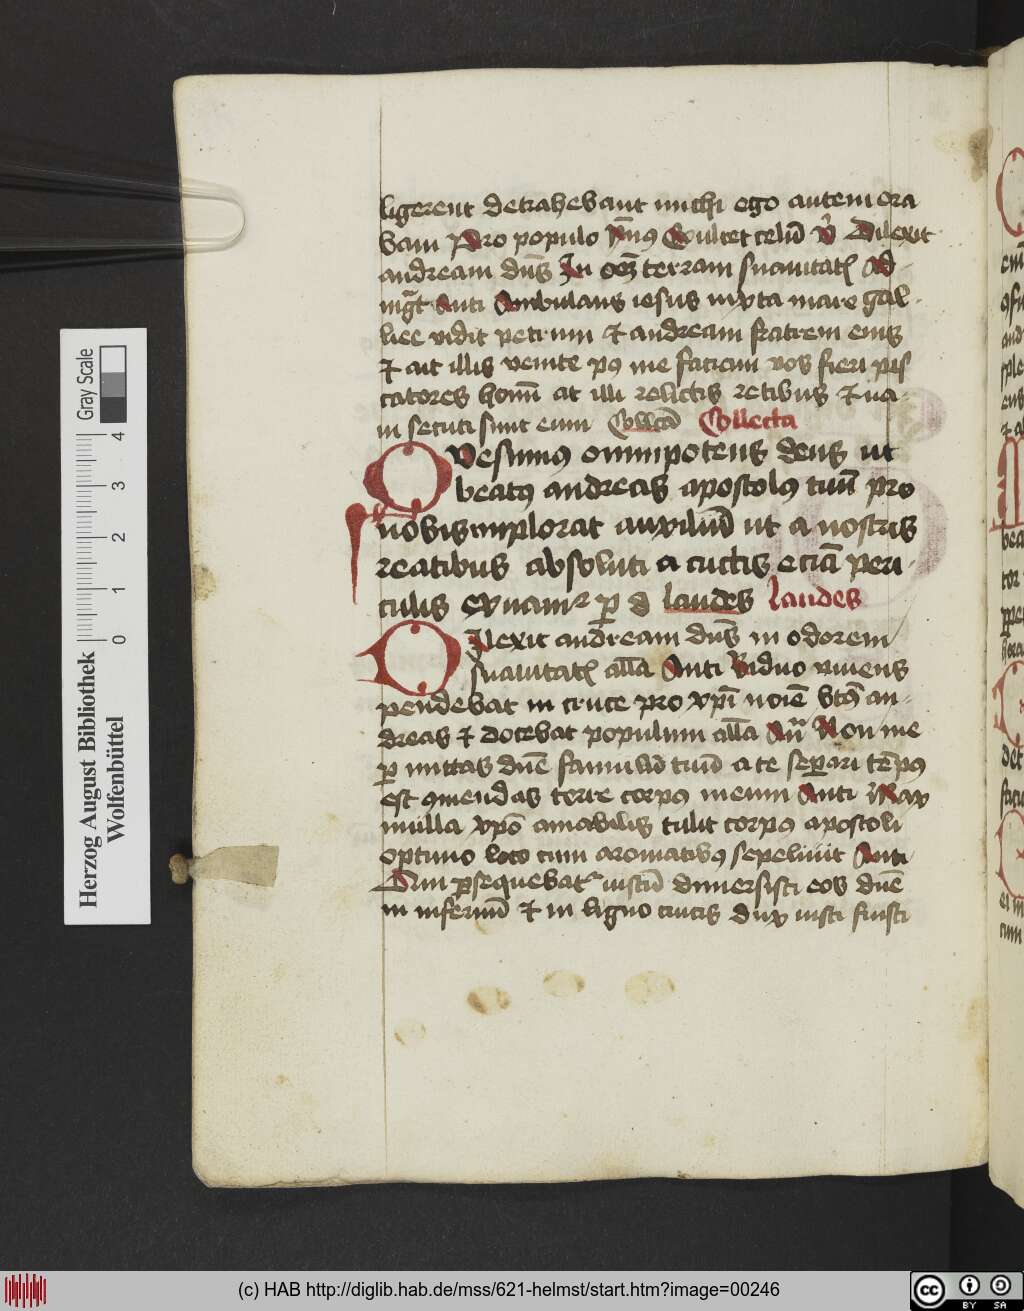 ligerent detrahebant michi ego autem ora
bam Pro populo ympnꝯ Exultet celū ℣ Dilexit
andream dn̄s In oē terram suauitatꝭ Ad
mgᷓt Anti Ambulans iesus iuxta mare gali
lee vidit petrum ⁊ andream fratrem eius
⁊ ait illis venite pꝯ me faciam vos fieri pis
catores homī at illi relictis retibus ⁊ na
ui secuti sunt eum Collcā Collecta
Qvesumꝯ omnipotens deus ut
beatꝯ andreas apostolꝯ tuū pro
nobis implorat auxiliū ut a nostris
reatibus absoluti a cūctis eciā peri
culis exuamᷣ ꝑ d laudes Laudes
Dilexit andream dn̄s in odorem
suauitatꝭ all̄a Anti Biduo viuens
pendebat in cruce pro xp̄i noīe btūs an
dreas ⁊ docebat populum all̄a An̄ Non me
ꝑmittas dn̄e famulū tuū a te seꝑari tēpꝯ
est ꝯmendas terre corpꝯ meum Anti Max
imilla xp̄o amabilis tulit corpꝯ apostoli
optimo loco cum aromatibꝯ sepeliuit Anti
Qui ꝑsequebatᷣ iustū dimersisti eos dn̄e
in infernū ⁊ in ligno crucis dux iusti fuisti
Herzog August Bibliothek
Wolfenbüttel
Gray Scale
0 1 2 3 4
(c) HAB http://diglib.hab.de/mss/621-helmst/start.htm?image=00246
cc BY SA